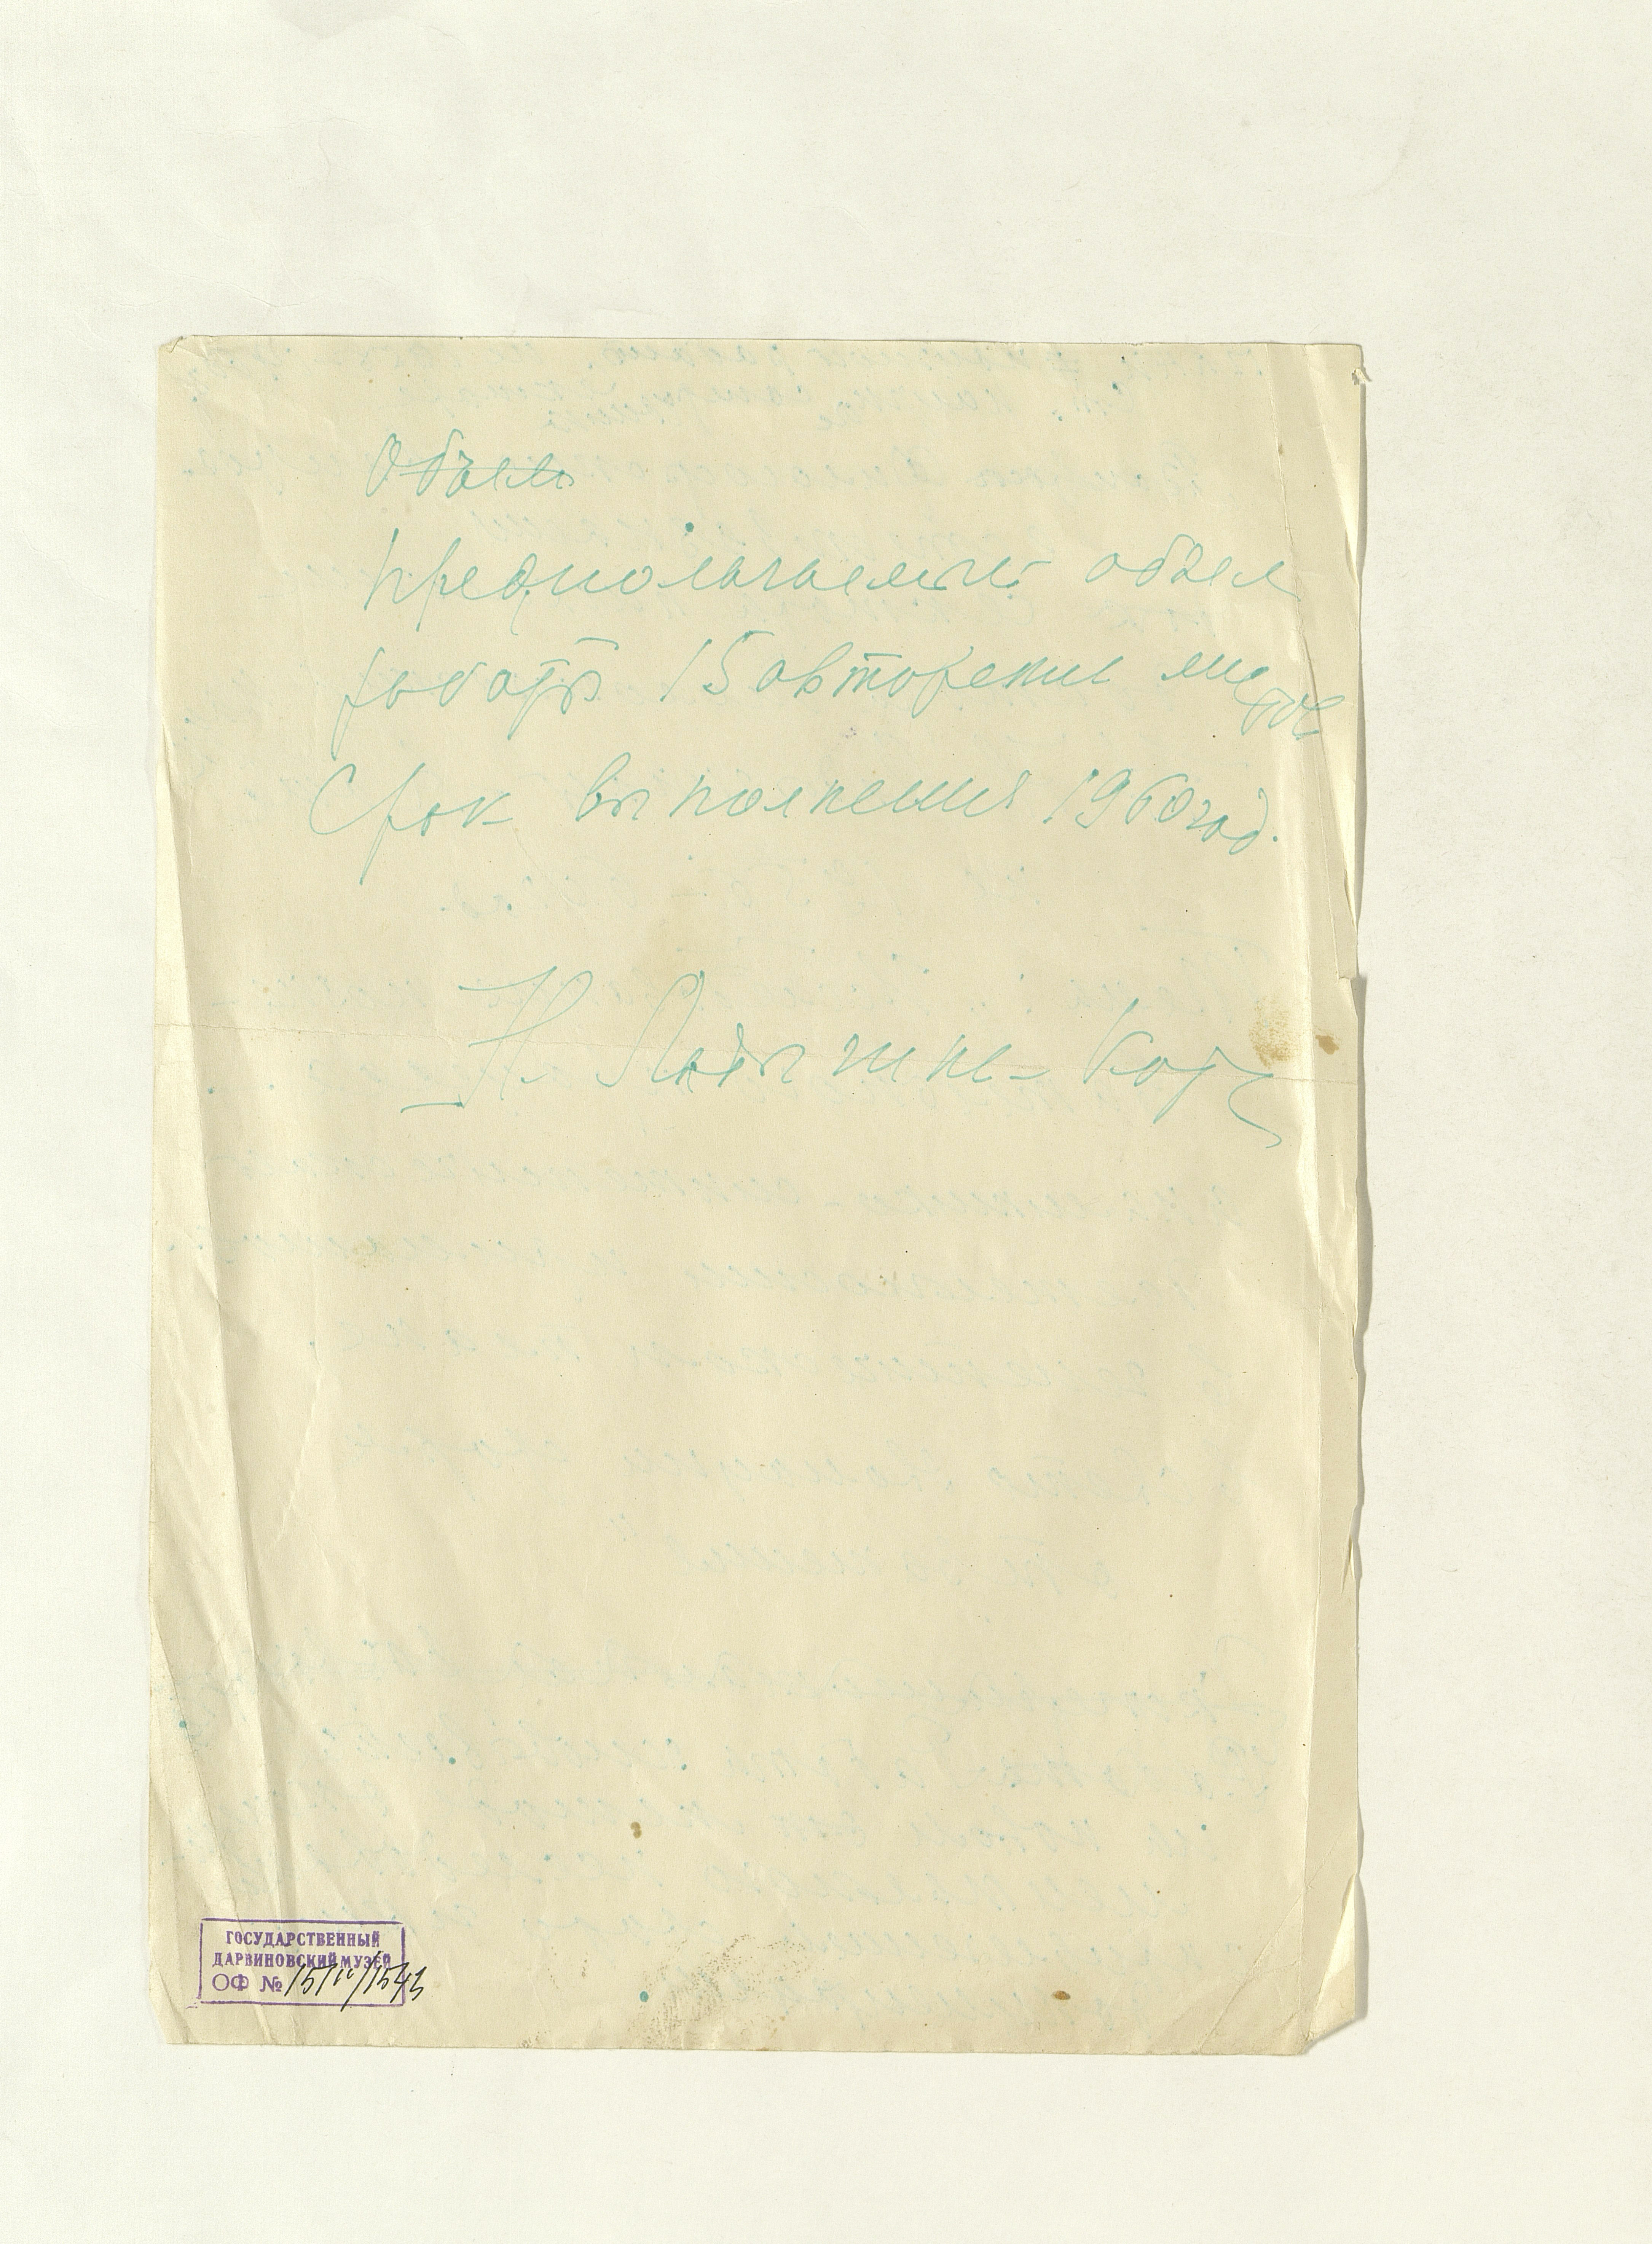 Объем
Предполагаемый объем
работы 15 авторских листов
Срок выполнения 1960 год.
Н. Ладыгина-Котс
ГОСУДАРСТВЕННЫЙ
ДАРВИНОВСКИЙ МУЗЕЙ
ОФ №